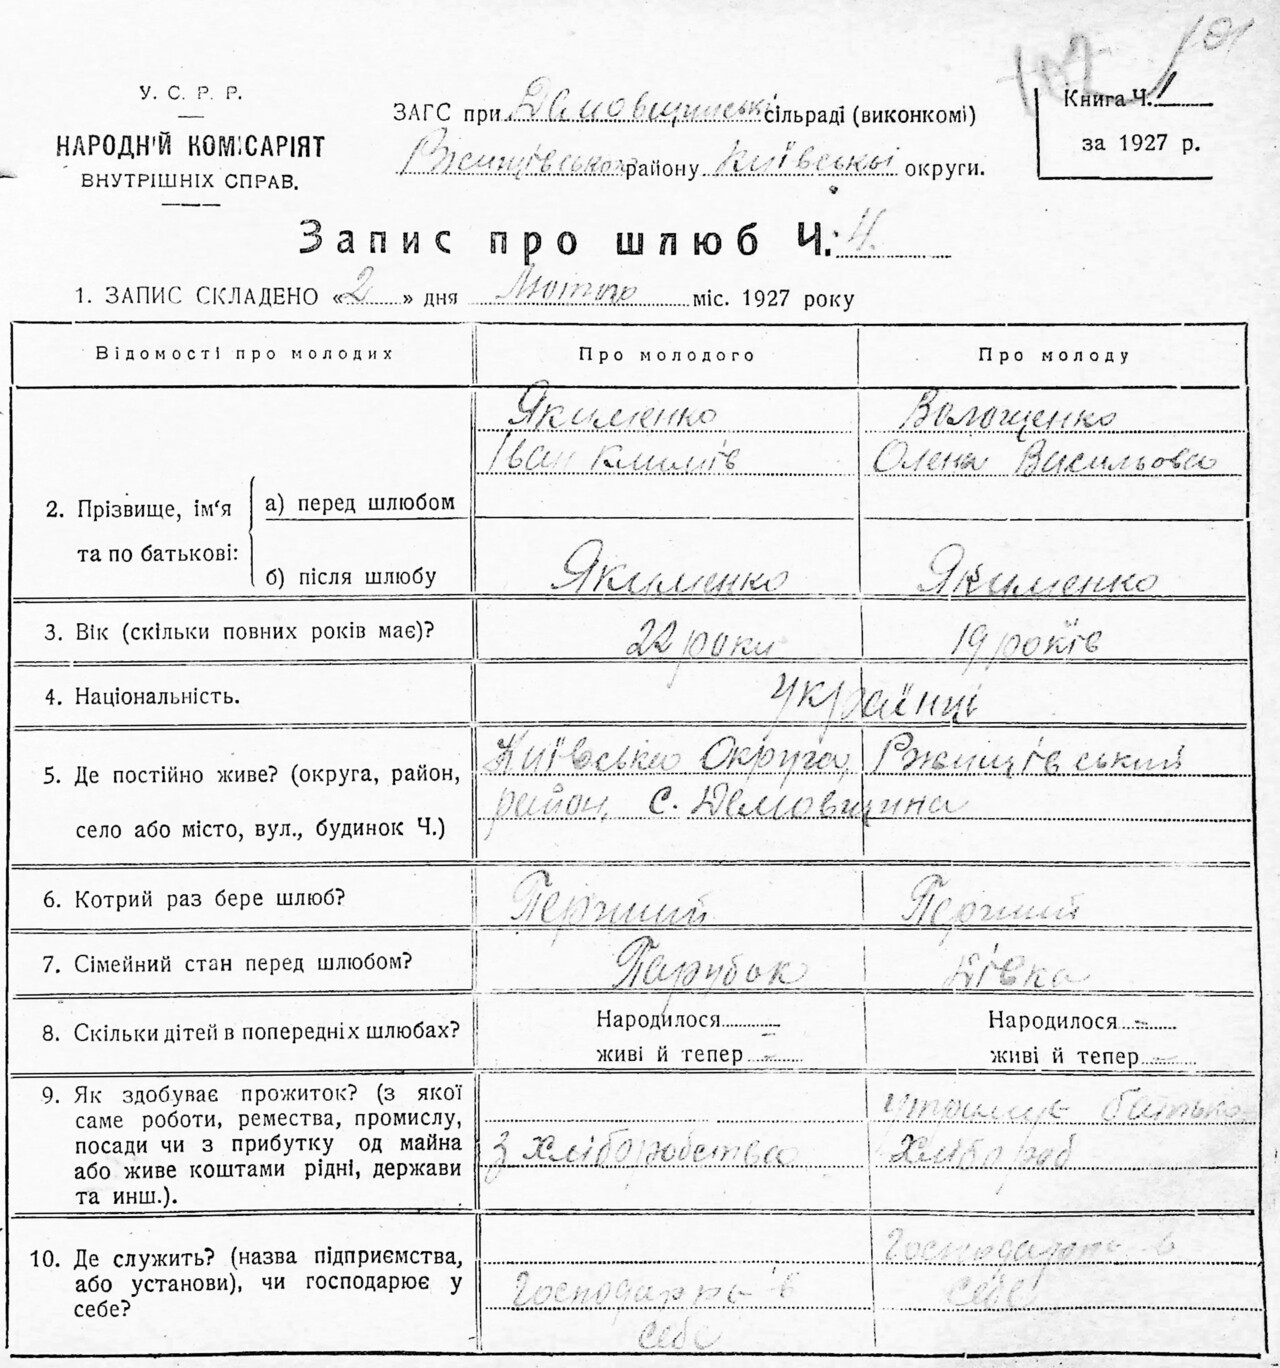 101
У. С. Р. Р.
НАРОДНІЙ КОМІСАРІЯТ
ВНУТРІШНІХ СПРАВ.
ЗАГС при Демовщинські сільраді (виконкомі)
Ржищівського району Київські округи.
Книга Ч. 1
за 1927 р.
Запис про шлюб Ч. 4.
1. ЗАПИС СКЛАДЕНО «2» дня Лютого міс. 1927 року
Відомості про молодих
Про молодого
Про молоду
2. Прізвище, ім‘я та по батькові:
а) перед шлюбом
Якименко
Іван Климів
Волощенко
Олена Васильовна
б) після шлюбу
Якименко
Якименко
3. Вік (скільки повних років має)?
22 роки
19 років
4. Національність.
Українці
5. Де постійно живе? (округа, район,
село або місто, вул., будинок Ч.)
Київська Округа, Ржищівський
район, с. Демовщина
6. Котрий раз бере шлюб?
Перший
Перший
7. Сімейний стан перед шлюбом?
Парубок
Дівка
8. Скільки дітей в попередніх шлюбах?
Народилося -
живі й тепер -
Народилося -
живі й тепер -
9. Як здобуває прожиток? (з якої
саме роботи, ремества, промислу,
посади чи з прибутку од майна
або живе коштами рідні, держави
та инш.).
з хліборобства
утримує батько
хлібороб
10. Де служить? (назва підприємства,
або установи), чи господарює у
себе?
Господарює в
себе
Господарює в
себе